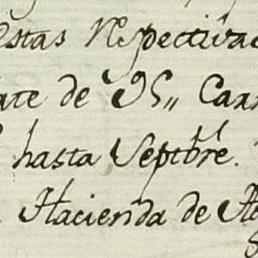 estas Respectiva
ate de 95,, Car
hasta Septbre.
Hacienda de